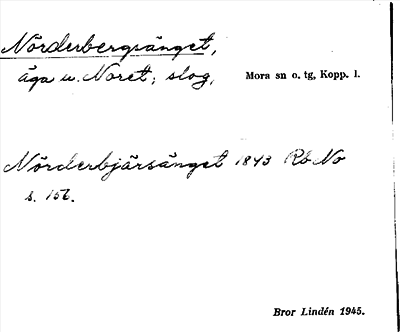 Nörderbergsänget,
äga u. Noret; slog, Mora sn o. tg, Kopp. l.
Nörderbjärsänget 1843 Rb No
s. 156.
Bror Lindén 1945.